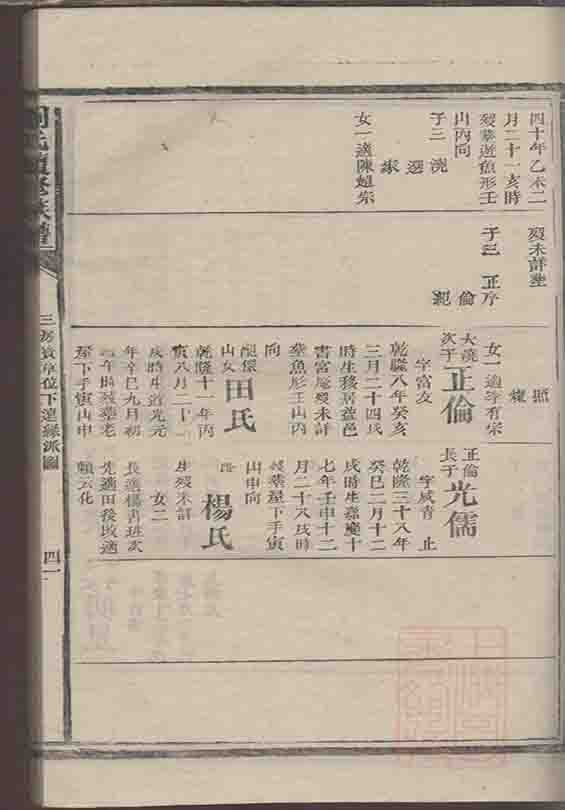 四十年乙未二
月二十一亥時
歿葬遊魚形壬
山丙向
子三 澆
選
女一適陳
歿未詳塋
子三 正序
倫
女一適等有宗
大澆
次子 正倫
字富文
乾隆八年癸亥
三月二十四戌
時生移居益邑
書富庵歿未詳
塋魚形壬山丙
向
田氏
山女
乾隆十一年丙
寅八月二十
戌時生道光元
年辛巳九月初
午時歿葬老
屋下手寅山申
正倫
長子 光儒
字咸青 止
乾隆三十八年
癸巳二月十二
戌時生嘉慶十
七年壬申十二
月二十八戌時
歿葬屋下手寅
山申向
楊氏
生歿未詳
女二
長適楊書班次
先適田後改適
賴云化
三房貴卓位下遠綠派圖
四一